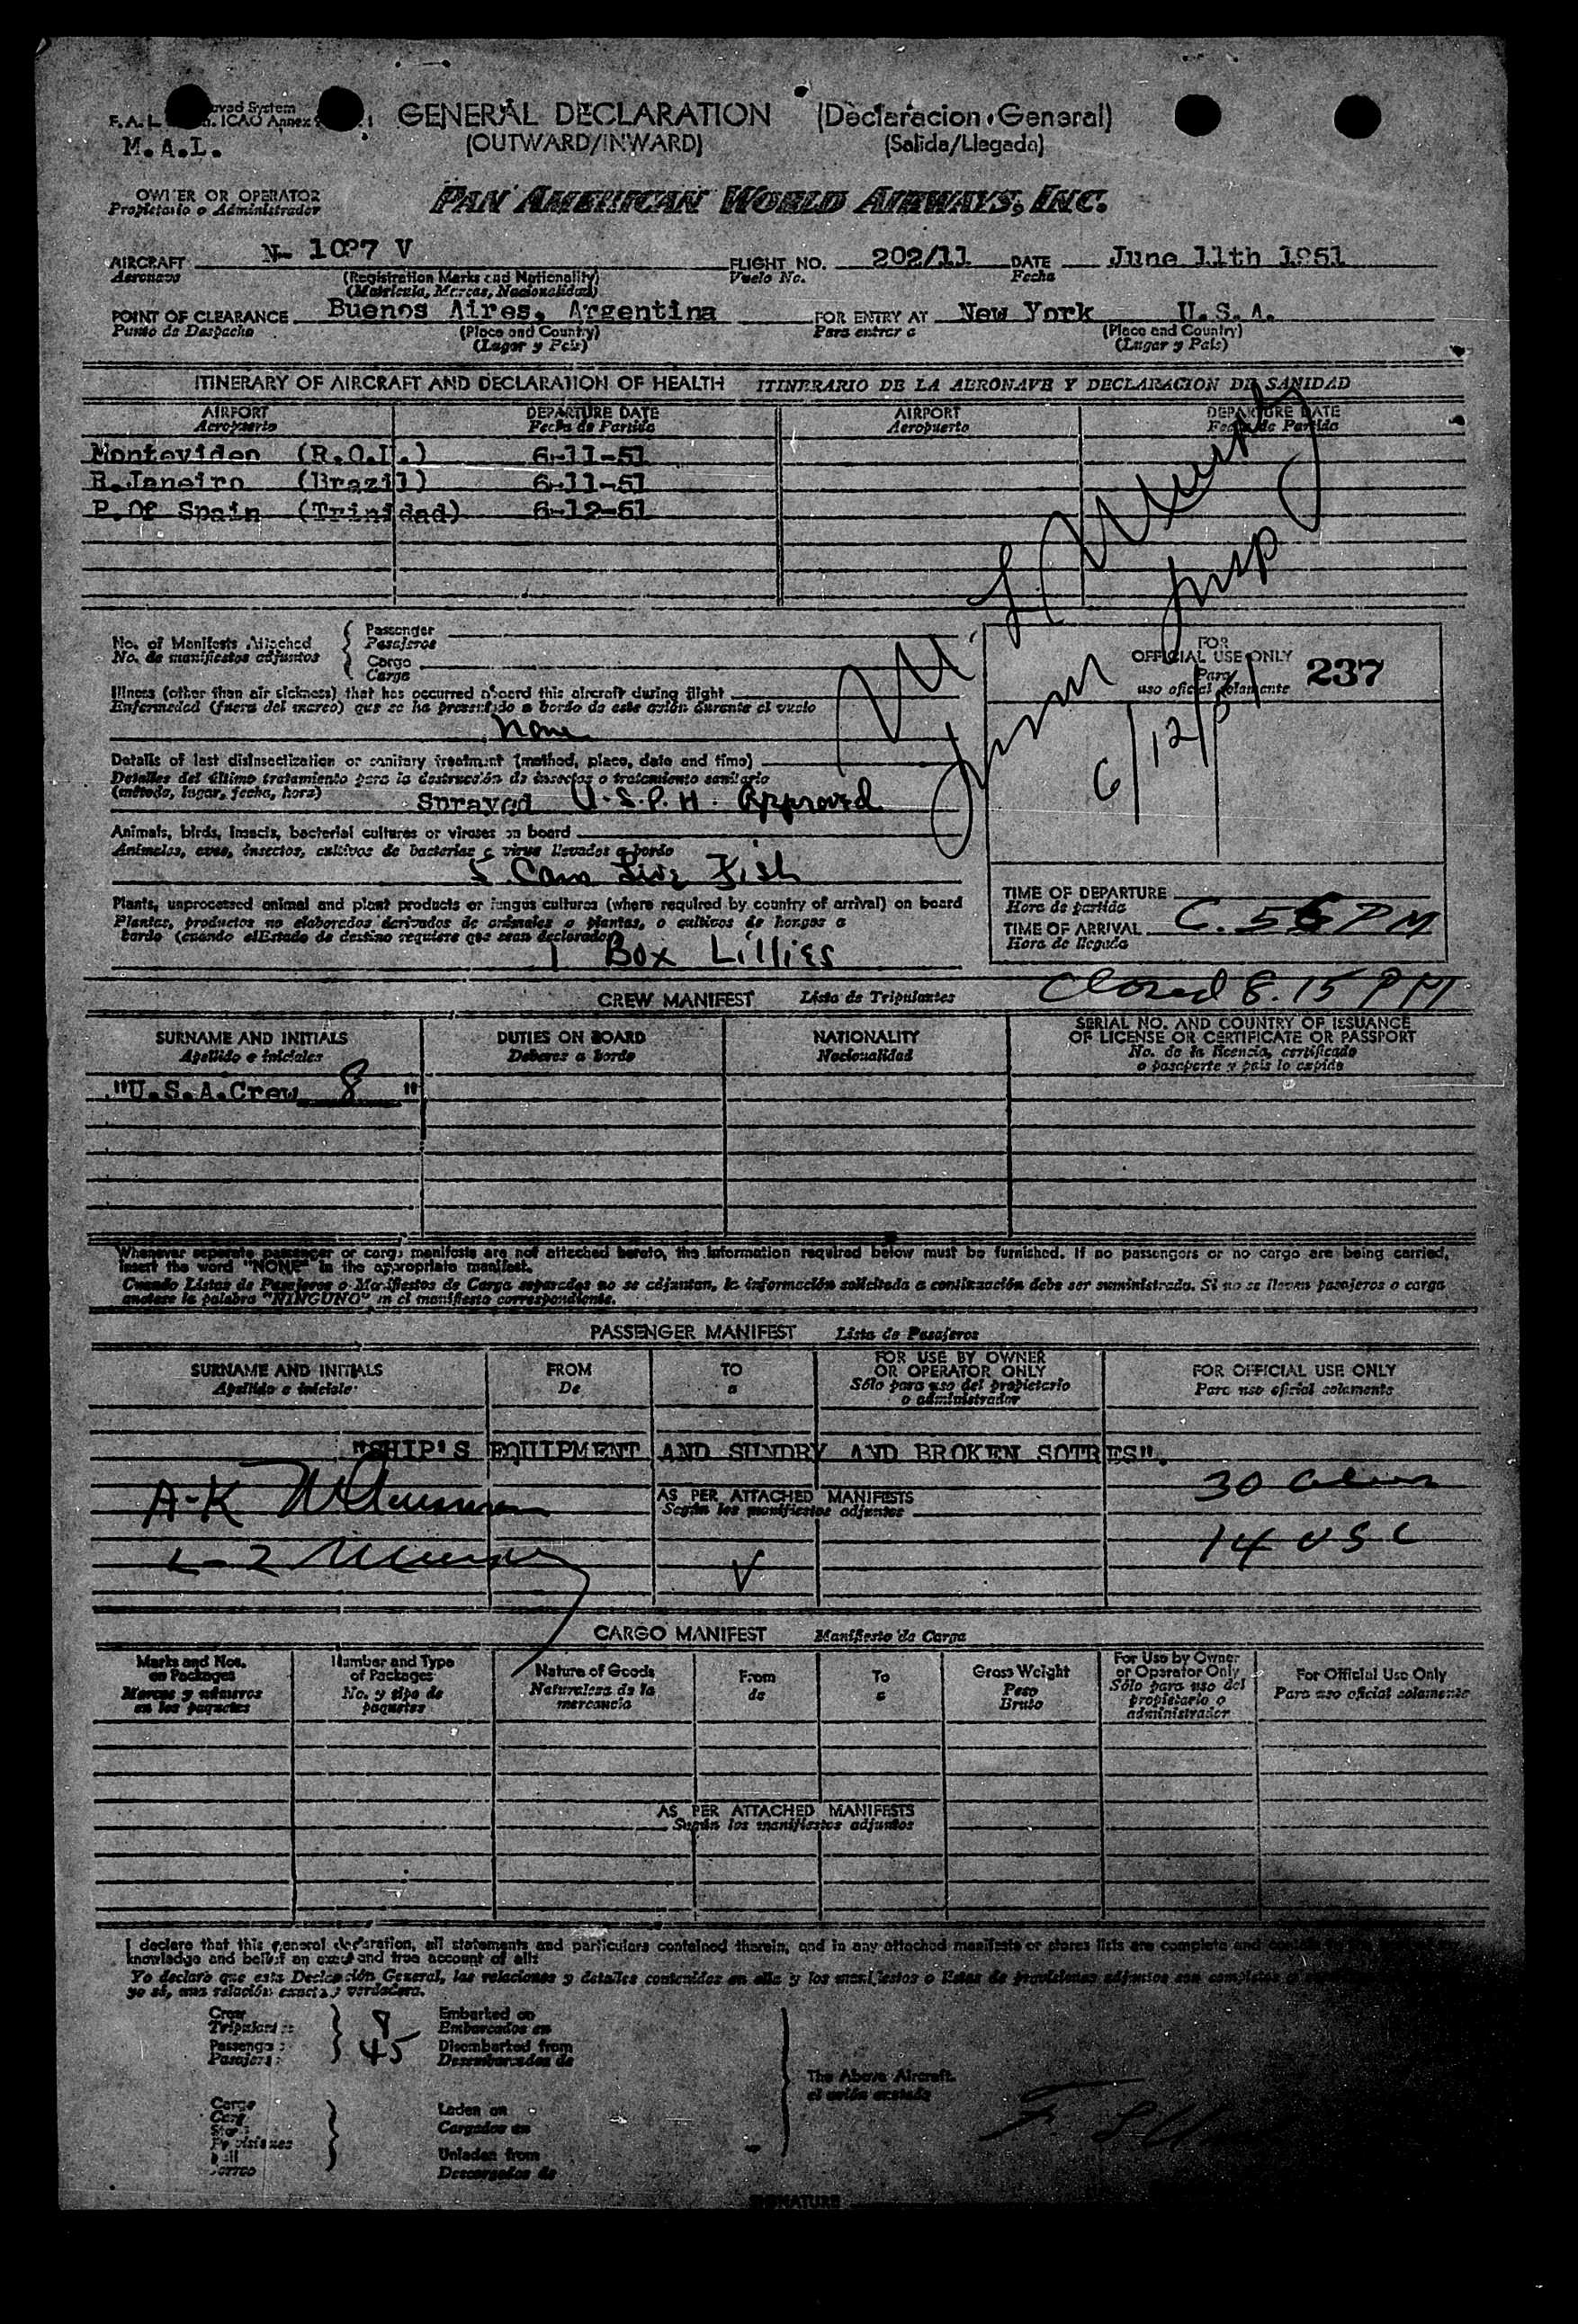 F.A.L. ICAO Annex
M.A.L.
GENERAL DECLARATION (Declaracion General)
(OUTWARD/INWARD) (Salida/Llegada)
OWNER OR OPERATOR
Propietario o Administrador
PAN AMERICAN WORLD AIRWAYS, INC.
AIRCRAFT N- 1027 V FLIGHT NO. 202/11 DATE June 11th 1951
Aeronave (Registration Marks and Nationality) Vuelo No. Fecha
(Matricula, Marcas, Nacionalidad)
POINT OF CLEARANCE Buenos Aires, Argentina FOR ENTRY AT New York U.S.A.
Punto de Despacho (Place and Country) Para entrar a (Place and Country)
(Lugar y Pais) (Lugar y Pais)
ITINERARY OF AIRCRAFT AND DECLARATION OF HEALTH ITINERARIO DE LA AERONAVE Y DECLARACION DE SANIDAD
AIRPORT DEPARTURE DATE AIRPORT DEPARTURE DATE
Aeropuerto Fecha de Partida Aeropuerto Fecha de Partida
Montevideo (R.O.U.) 6-11-51
R.Janeiro (Brazil) 6-11-51
P.Of Spain (Trinidad) 6-12-51
No. of Manifests Attached
No. de manifiestos adjuntos
Passenger
Pasajeros
Cargo
Carga
FOR
OFFICIAL USE ONLY 237
Para
uso oficial solamente
6/12/51
Illness (other than air sickness) that has occurred aboard this aircraft during flight
Enfermedad (fuera del mareo) que se ha presentado a bordo de este avión durante el vuelo
None
Details of last disinsectization or sanitary treatment (method, place, date and time)
Detalles del último tratamiento para la destrucción de insectos o tratamiento sanitario
(método, lugar, fecha, hora) Sprayed U.S.P.H. Approved
Animals, birds, insects, bacterial cultures or viruses on board
Animales, aves, insectos, cultivos de bacterias o virus llevados a bordo
5 Cans Live Fish
Plants, unprocessed animal and plant products or fungus cultures (where required by country of arrival) on board
Plantas, productos no elaborados derivados de animales o plantas, o cultivos de hongos a
bordo (cuando el Estado de destino requiere que sean declarados)
1 Box Lillies
TIME OF DEPARTURE
Hora de partida
TIME OF ARRIVAL 6.56 PM
Hora de llegada
Closed 8.15 PM
CREW MANIFEST Lista de Tripulantes
SURNAME AND INITIALS DUTIES ON BOARD NATIONALITY SERIAL NO. AND COUNTRY OF ISSUANCE
OF LICENSE OR CERTIFICATE OR PASSPORT
Apellido e iniciales Deberes a bordo Nacionalidad No. de la licencia, certificado
o pasaporte y pais lo expide
"U.S.A.Crew 8 "
Whenever separate passenger or cargo manifests are not attached hereto, the information required below must be furnished. If no passengers or no cargo are being carried,
insert the word "NONE" in the appropriate manifest.
Cuando Listas de Pasajeros o Manifiestos de Carga separados no se adjuntan, la información solicitada a continuación debe ser suministrada. Si no se llevan pasajeros o carga
anotese la palabra "NINGUNO" en el manifiesto correspondiente.
PASSENGER MANIFEST Lista de Pasajeros
SURNAME AND INITIALS FROM TO FOR USE BY OWNER
OR OPERATOR ONLY FOR OFFICIAL USE ONLY
Apellido e iniciale De a Sólo para uso del propietario
o administrador Para uso oficial solamente
"SHIP'S EQUIPMENT AND SUNDRY AND BROKEN SOTRES".
A-K 30 Aliens
AS PER ATTACHED MANIFESTS
Según los manifiestos adjuntos
L-Z 14 USC
CARGO MANIFEST Manifiesto de Carga
Marks and Nos.
on Packages
Marcas y números
en los paquetes
Number and Type
of Packages
No. y tipo de
paquetes
Nature of Goods
Naturaleza de la
mercancia
From
de
To
a
Gross Weight
Peso
Bruto
For Use by Owner
or Operator Only
Sólo para uso del
propietario o
administrador
For Official Use Only
Para uso oficial solamente
AS PER ATTACHED MANIFESTS
Según los manifiestos adjuntos
I declare that this general declaration, all statements and particulars contained therein, and in any attached manifests or stores lists are complete and
knowledge and belief an exact and true account of all:
Yo declaro que esta Declaración General, las relaciones y detalles contenidos en ella y los manifiestos o listas de provisiones adjuntos son completos
yo sé, una relación exacta y verdadera.
Crew
8
Embarked on
Embarcados en
45
Disembarked from
Desembarcados de
The Above Aircraft.
el avión acotado
Cargo
Laden on
Cargados en
Unladen from
Descargados de
SIGNATURE